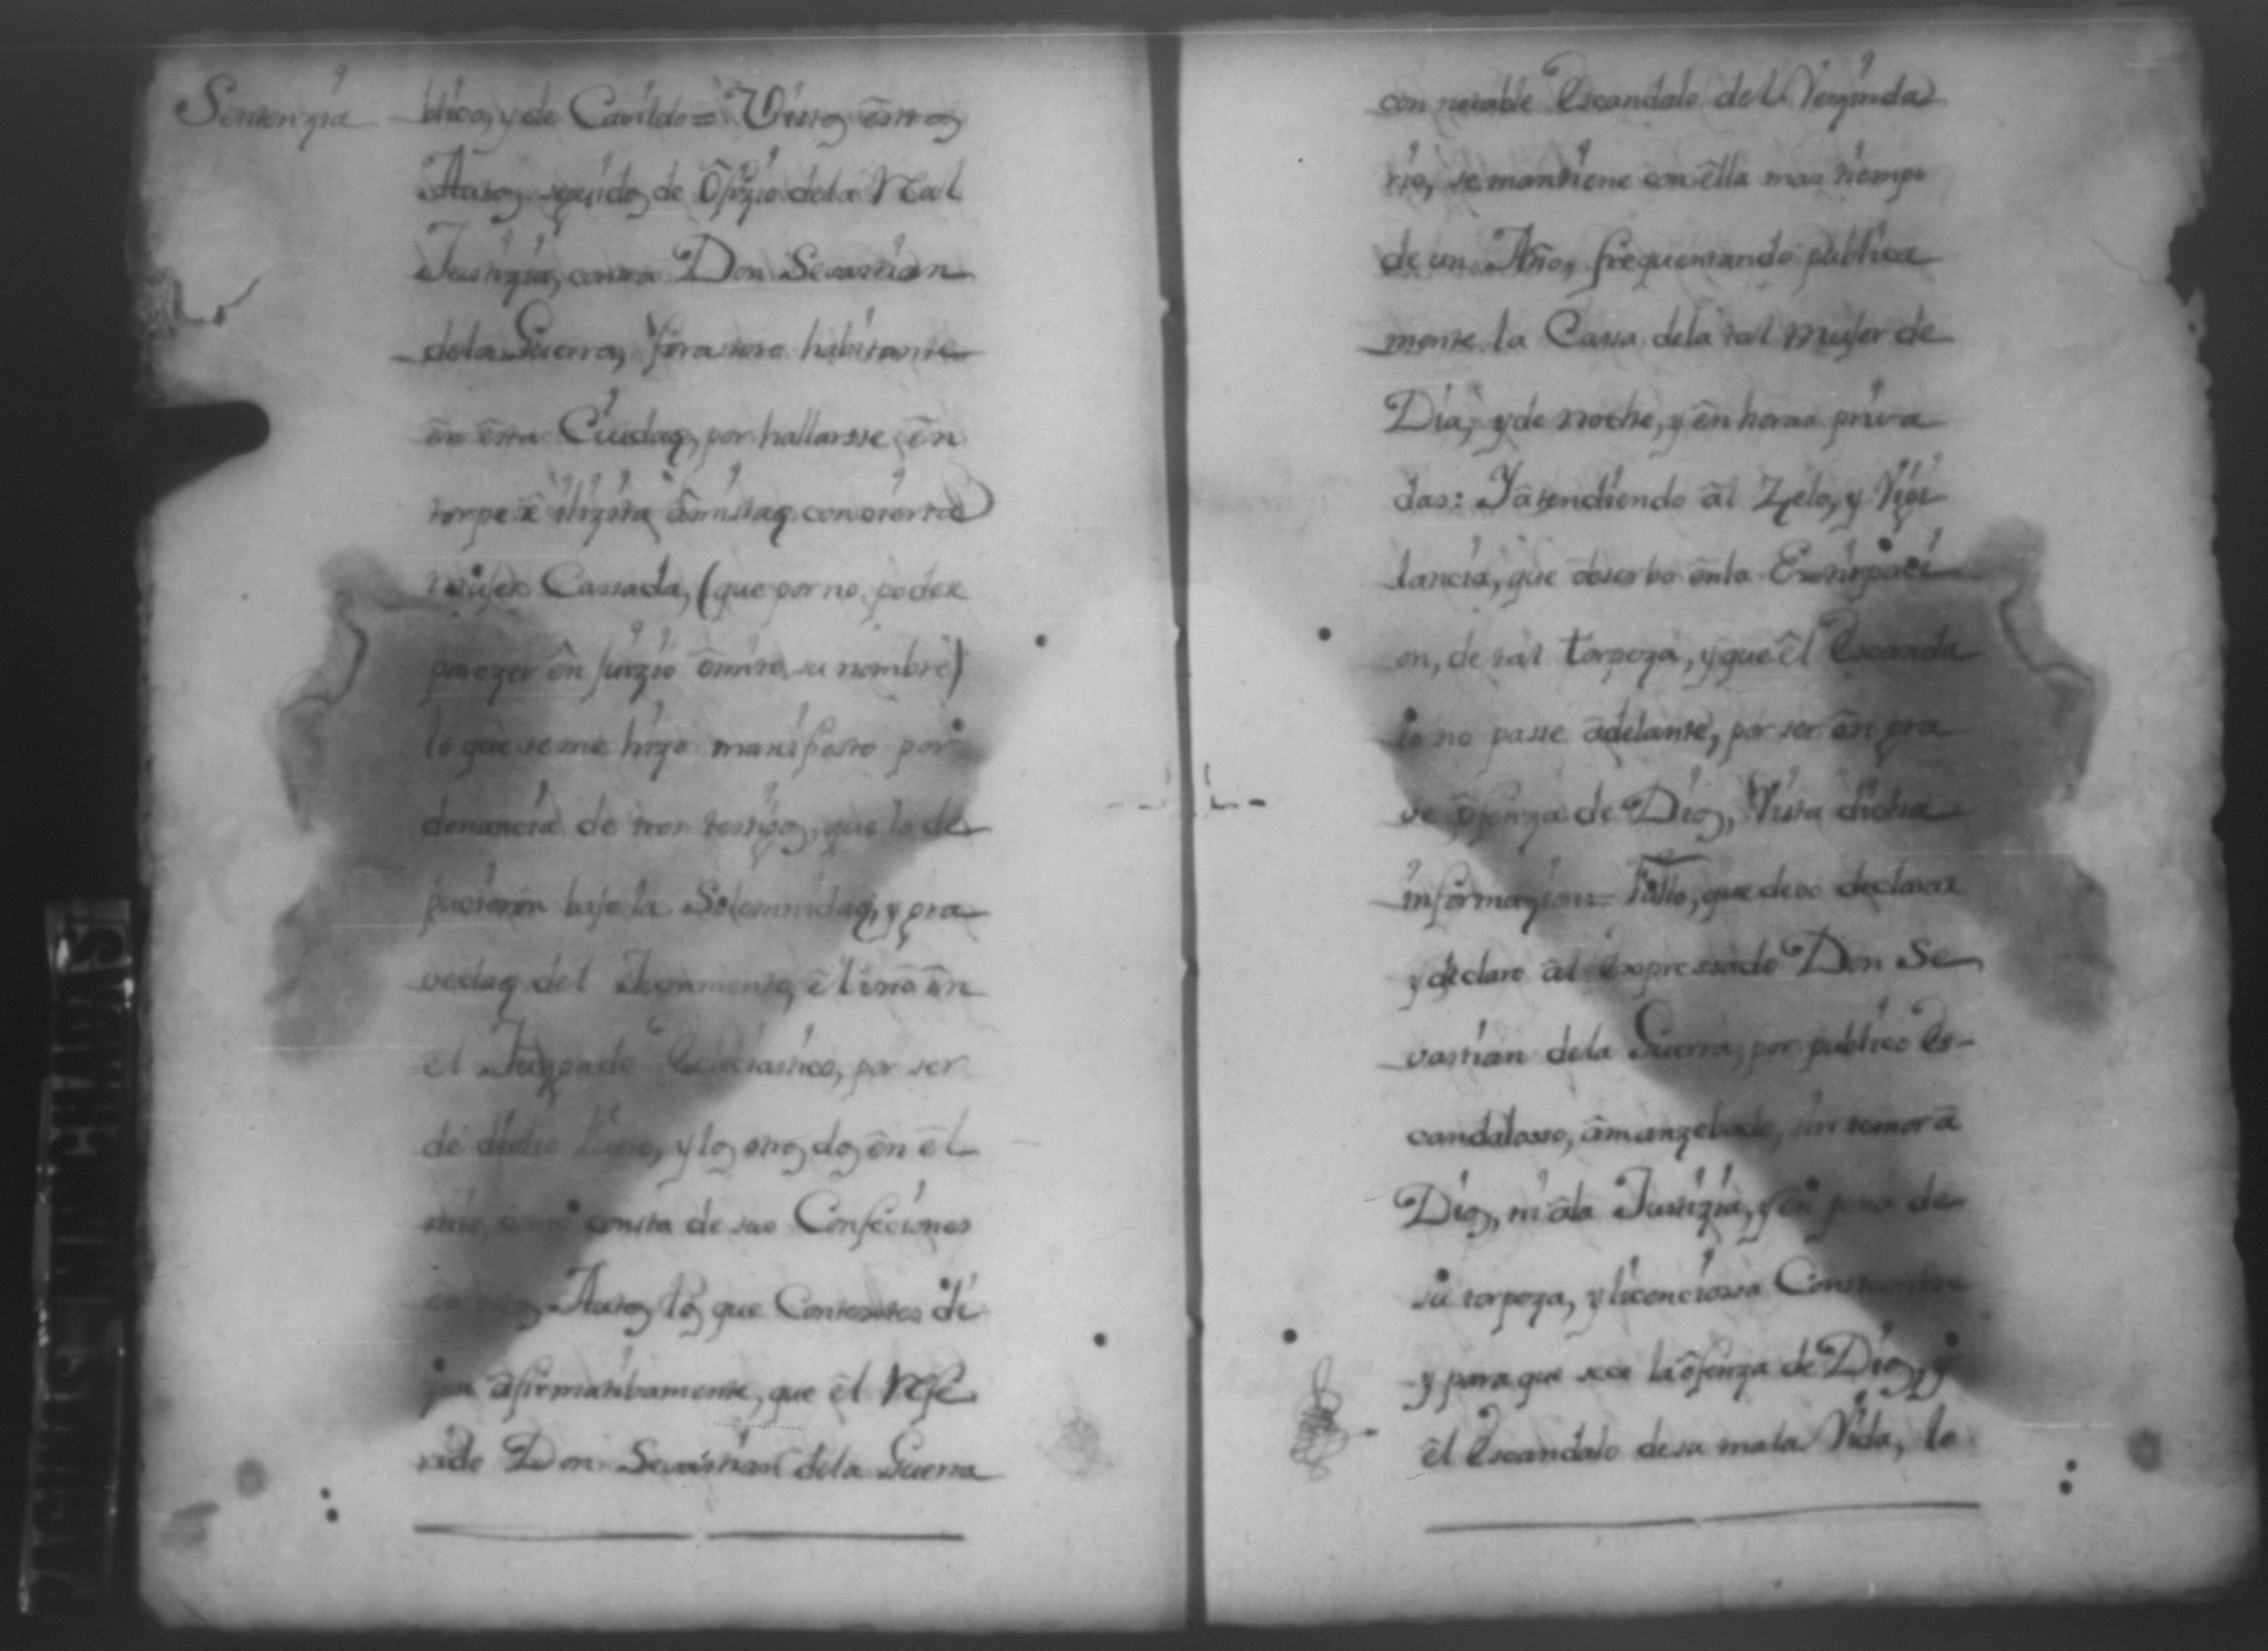 Sentenzia
blico, y de Cavildo = Vistos êstos
Autos seguidos de Ôfizio dela Real
Justizia, contra Don Sevastian
dela Guerra, forastero habitante
ên êsta Ciudad, por hallarsse ên
torpe ê ilizita âmistad con zierta
mujer Cassada, (que por no poder
parezer ên Juizio ômito su nombre)
lo que se me hizo manifiesto por
denuncia de tres testigos, que lo de
pusieron bajo la Solemnidad, y gra
vedad del Juramento, êl uno ên
el Juzgado Eclesiastico, por ser
de dicho fuero, y los otros dos ên êl
mio, como consta de sus Confeciones
Autos, los que Contestes di
jeron âfirmatibamente, que êl Refe
rido Don Sevastian dela Guerra
con notable Escandalo del Vezinda
rio, se mantiene con êlla mas tiempo
de un Año, frequentando publica
mente la Cassa dela tal Mujer de
Dia, y de noche, y ên horas priva
das: Y atendiendo âl Zelo, y Vigi
lancia, que ôbserbo ênla Extirpaci
on, de tal torpeza, y que êl Escanda
lo no passe âdelante, por ser ên gra
ve ôfenza de Dios, Vista dicha
informazion = Fallo, que devo declarar
y declaro âl Expressado Don Se
vastian dela Guerra, por publico Es-
candalosso, âmanzebado, sin temor â
Dios, ni âla Justizia, y ên pena de
su torpeza, y licenciossa Constumbre
y para que sese la ôfenza de Dios, y
êl Escandalo de su mala Vida, lo